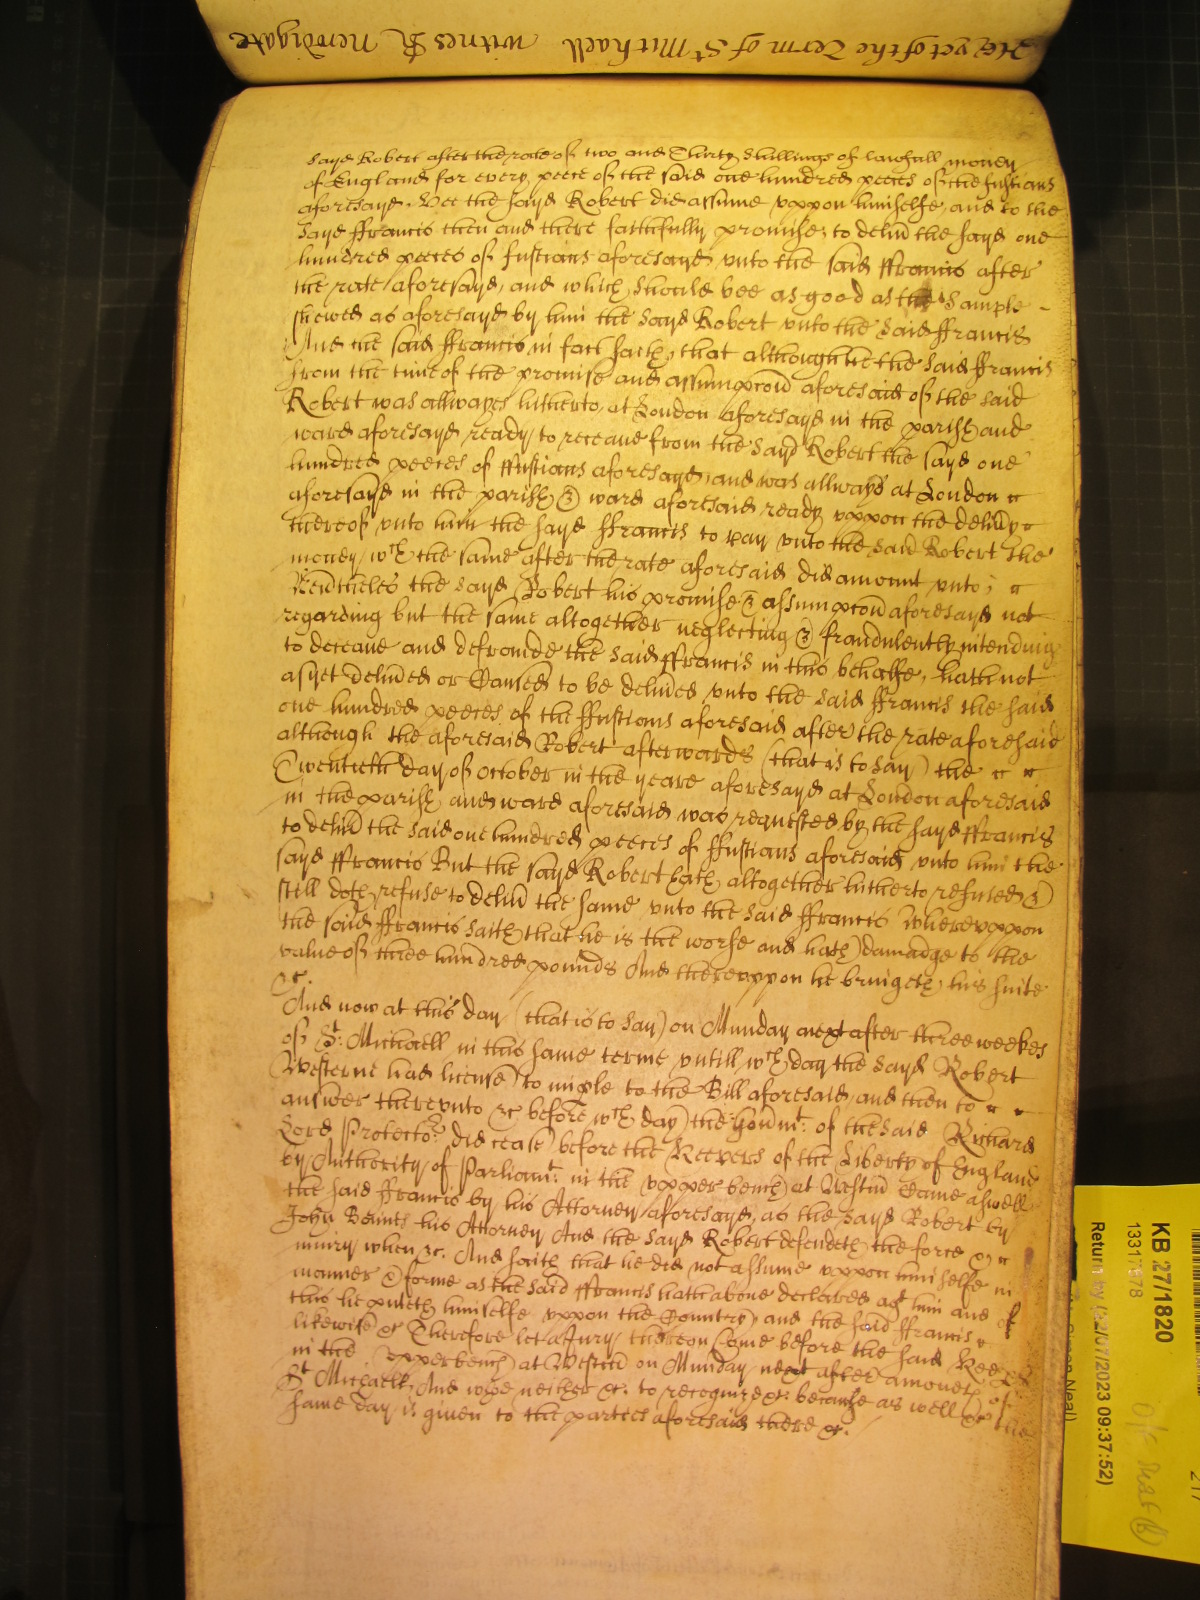 As yet of the Terme of St Michaell witnes R Newdigate
sayd Robert after the rate of two and Thirty Shillings of lawfull money
of England for every peece of the said one hundred peeces of the fustians
aforesayd. Hee the sayd Robert did assume vppon himselfe, and to the
sayd ffrancis then and there faithfully promise, to deliu the sayd one
hundred peeces of fustians aforesayd vnto the said ffrancis after
the rate aforesayd, and which should bee as good as the Sample -
shewed as aforesayd by him the sayd Robert vnto the said ffrancis
And the said ffrancis in fact saith, that although hee the said ffrancis
from the time of the promise and assumpcon aforesaid of the said
Robert was allwayes hitherto, at London aforesayd in the parish and
ward aforesayd ready to receaue from the sayd Robert the sayd one
hundred peeces of ffustians aforesayd, and was allways at London
aforesayd in the parish & ward aforesaid ready vppon the deliuy
thereof vnto him the sayd ffrancis to pay vnto the said Robert the
money, wch the same after the rate aforesaid did amount vnto;
Neutheles the sayd Robert his promise & assumpcon aforesayd not
regarding but the same altogether neglecting & fraudulently intending
to deceaue and defraude the said ffrancis in this behalfe, hath not
as yet deliued or Caused to be deliued vnto the said ffrancis the said
one hundred peeces of the ffustians aforesaid after the rate aforesaid
although the aforesaid Robert afterwards (that is to say) the
Twentieth day of October in the yeare aforesayd at London aforesaid
in the parish and ward aforesaid was requested by the sayd ffrancis
to deliu the said one hundred peeces of ffustians aforesaid vnto him the
sayd ffrancis But the sayd Robert hath altogether hitherto refused &
still doth refuse to deliu the same vnto the said ffrancis Wherevppon
the said ffrancis saith that he is the worse and hath damadge to the
value of three hundred pounds And therevppon he bringeth his suite
&c.
And now at this day (that is to say) on Munday next after three weekes
of St. Michaell in this same terme vntill wch day the sayd Robert
Westerne had license to imple to the Bill aforesaid, and then to
answer therevnto &c before wch day the Gou'mt. of the said Richard
Lord Protector did cease before the Keepers of the Liberty of England
by Authority of Parliamt. in the vpper bench at Westm Came aswell
the said ffrancis by his Attorney aforesayd, as the sayd Robert by
John his Attorney And the sayd Robert defendeth the force &
iniury when &c. And saith that he did not assume vppon himselfe in
manner & forme as the said ffrancis hath aboue declared agt him and of
this he putteth himselfe vppon the Country and the said ffrancis
likewise &c Therefore let a Jury thereon Come before the said
in the vpper bench at Westm on Munday next after amoneth of
St Michaell, And who neither &c. to recognize &c. because as well &c the
same day is given to the partees aforesaid there &c.
KB 27/1820
13317878
Return by (22/07/2023 09:37:52)